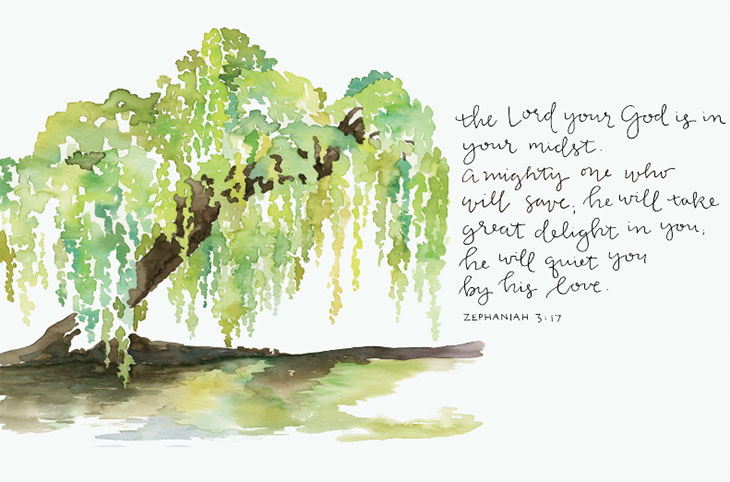 the Lord your God is in
your midst.
a mighty one who
will save; he will take
great delight in you;
he will quiet you
by his love.
ZEPHANIAH 3:17